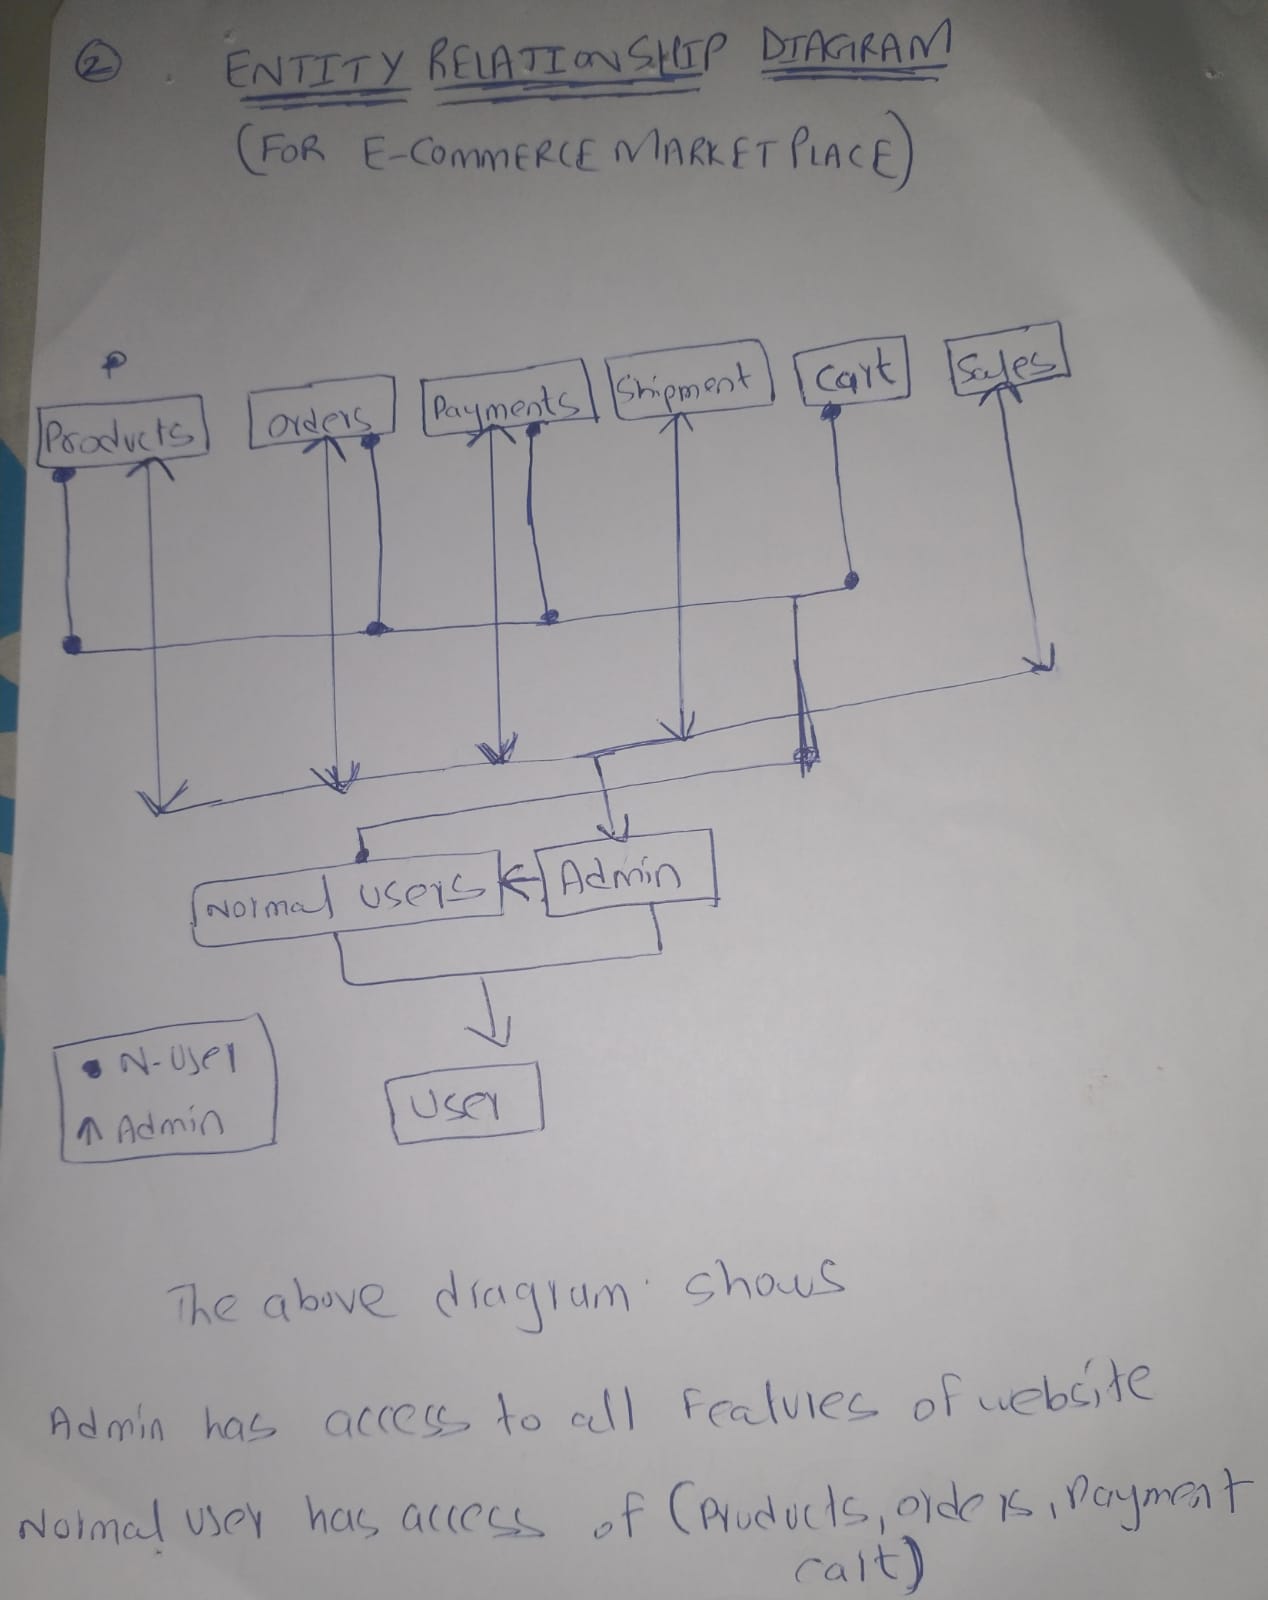 2
ENTITY RELATIONSHIP DIAGRAM
(FOR E-COMMERCE MARKET PLACE)
P
Products
orders
Payments
Shipment
Cart
Sales
Normal users
Admin
N-User
Admin
User
The above diagram shows
Admin has access to all Features of website
Normal user has access of (Products, orders, Payment
cart)